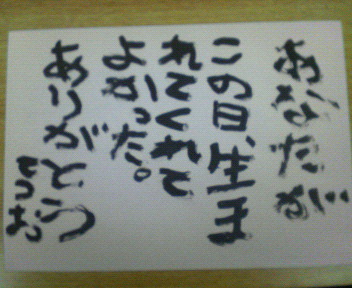 あなたが
この日、生ま
れてくれて
よかった。
ありがとう